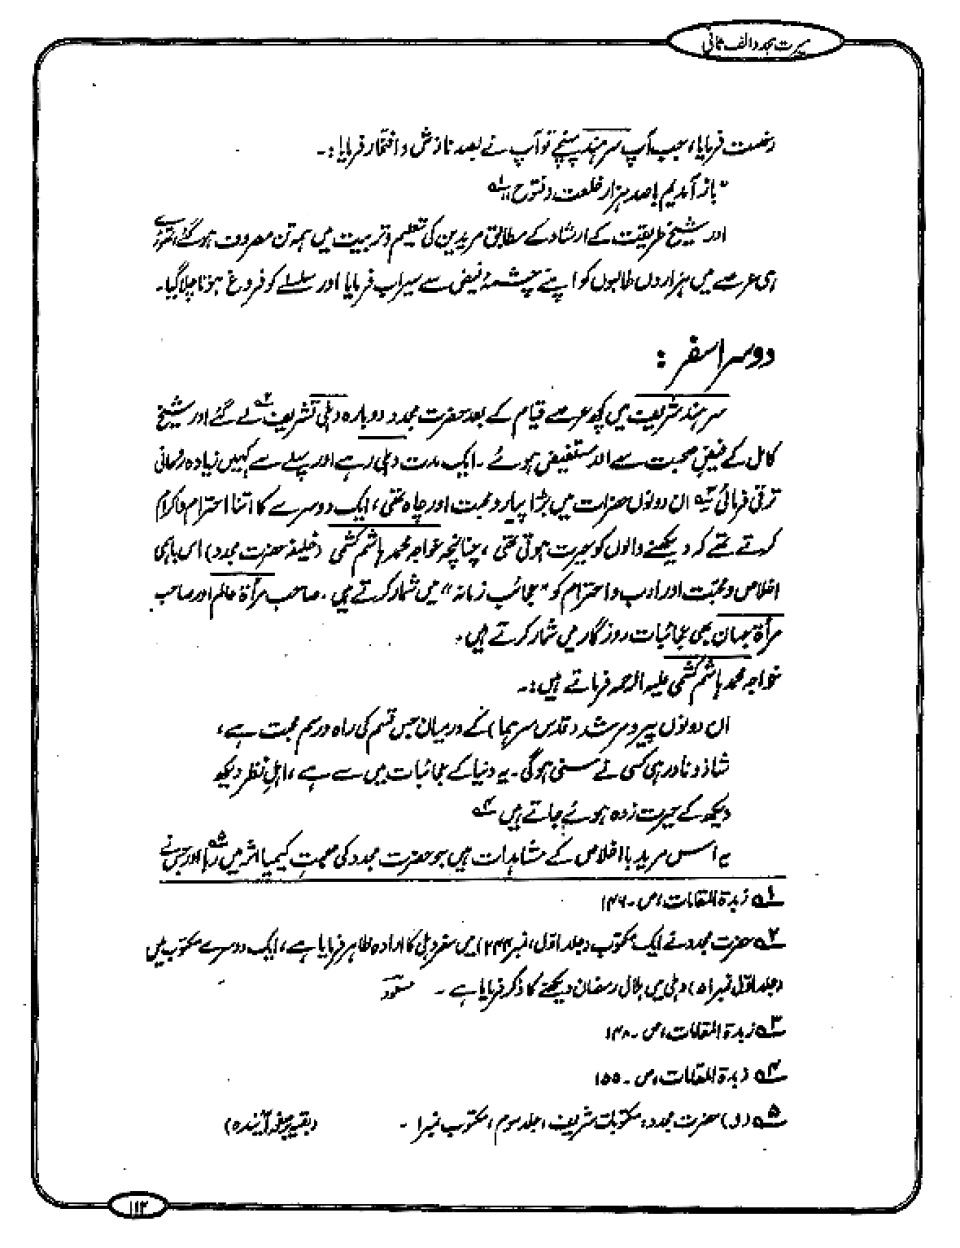 سیرت مجدد الف ثانی
رخصت فرمایا، جب آپ سرہند پہنچے تو آپ نے بصد نازش و افتخار فرمایا :۔
"باز آمدیم باصد ہزار خلعت و فتوح" ۱؎
اور شیخ طریقت کے ارشاد کے مطابق مریدین کی تعلیم و تربیت میں ہمہ تن مصروف ہو گئے، تھوڑے
ہی عرصے میں ہزاروں طالبوں کو اپنے چشمۂ فیض سے سیراب فرمایا اور سلسلے کو فروغ ہوتا چلا گیا۔
دوسرا سفر :
سرہند شریف میں کچھ عرصے قیام کے بعد حضرت مجدد دوبارہ دہلی تشریف ۲؎ لے گئے اور شیخ
کامل کے فیض صحبت سے مستفیض ہوئے ۔ ایک مدت دہلی رہے اور پہلے سے کہیں زیادہ روحانی
ترقی فرمائی ۳؎ ان دونوں حضرات میں بڑا پیار و محبت اور چاہ تھی، ایک دوسرے کا اتنا احترام و اکرام
کرتے تھے کہ دیکھنے والوں کو حیرت ہوتی تھی، چنانچہ خواجہ محمد ہاشم کشمی (خلیفہ حضرت مجدد) اس باہمی
اخلاص و محبت اور ادب و احترام کو "عجائب زمانہ" میں شمار کرتے ہیں، صاحب مرأۃ عالم اور صاحب
مرأۃ جہان بھی عجائبات روزگار میں شمار کرتے ہیں۔
خواجہ محمد ہاشم کشمی علیہ الرحمہ فرماتے ہیں :۔
ان دونوں پیر و مرشد (قدس سرہما) کے درمیان جس قسم کی راہ و رسم محبت ہے،
شاذ و نادر ہی کسی نے سنی ہوگی۔ یہ دنیا کے عجائبات میں سے ہے، اہل نظر دیکھ
دیکھ کے حیرت زدہ ہوئے جاتے ہیں ۴؎
یہ اس مرید با اخلاص کے مشاہدات ہیں جو حضرت مجدد کی صحبت کیمیا اثر میں رہا ۵؎ اور جس نے
۱؎ زبدۃ المقامات، ص ۔ ۱۴۶
۲؎ حضرت مجدد نے ایک مکتوب (جلد اول، نمبر ۲۴۴) میں سفر دہلی کا ارادہ ظاہر فرمایا ہے، ایک دوسرے مکتوب میں
(جلد اول نمبر ۵۱) دہلی میں ہلال رمضان دیکھنے کا ذکر فرمایا ہے ۔ مسعود
۳؎ زبدۃ المقامات، ص ۔ ۱۴۸
۴؎ زبدۃ المقامات، ص ۔ ۱۵۵
۵؎ (ا) حضرت مجدد، مکتوبات شریف، جلد سوم، مکتوب نمبر ۱ ۔ (بقیہ بر صفحہ آیندہ)
۱۱۲